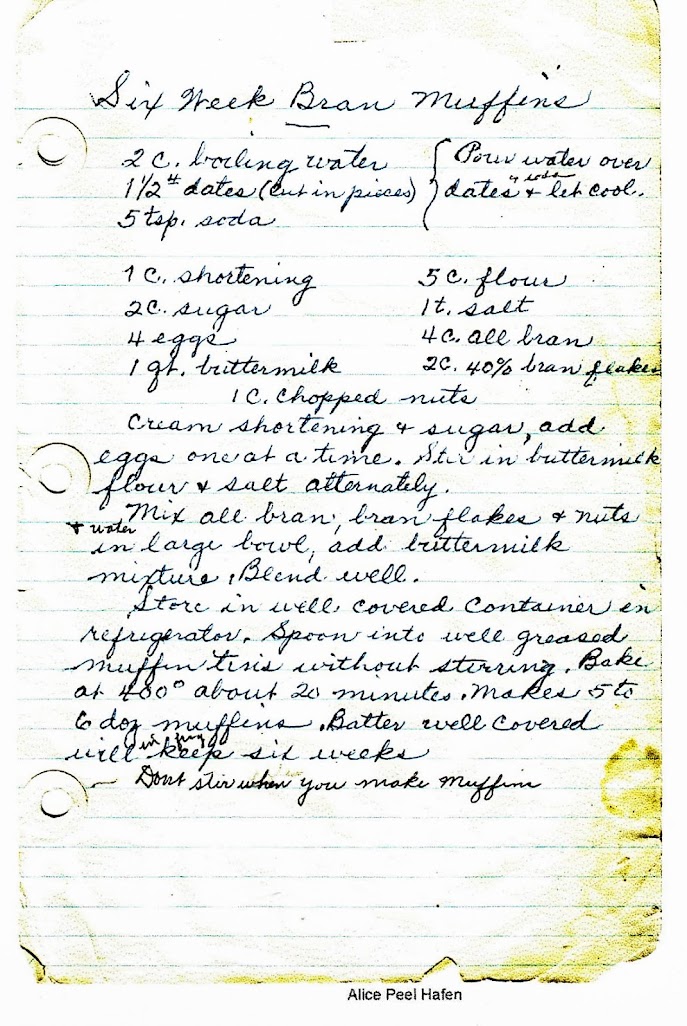 Six Week Bran Muffins
2 c. boiling water { Pour water over
1 1/2 # dates (cut in pieces) dates & soda & let cool.
5 tsp. soda
1 c. shortening 5 c. flour
2 c. sugar 1 t. salt
4 eggs 4 c. all bran
1 qt. buttermilk 2 c. 40% bran flakes
1 c. chopped nuts
Cream shortening & sugar, add
eggs one at a time. Stir in buttermilk
flour & salt alternately.
Mix all bran, bran flakes & nuts
+ water
in large bowl, add buttermilk
mixture. Blend well.
Store in well covered container in
refrigerator. Spoon into well greased
muffin tins without stirring. Bake
at 400° about 20 minutes. Makes 5 to
6 doz muffins. Batter well covered
will in frig keep six weeks
Dont stir when you make muffins
Alice Peel Hafen